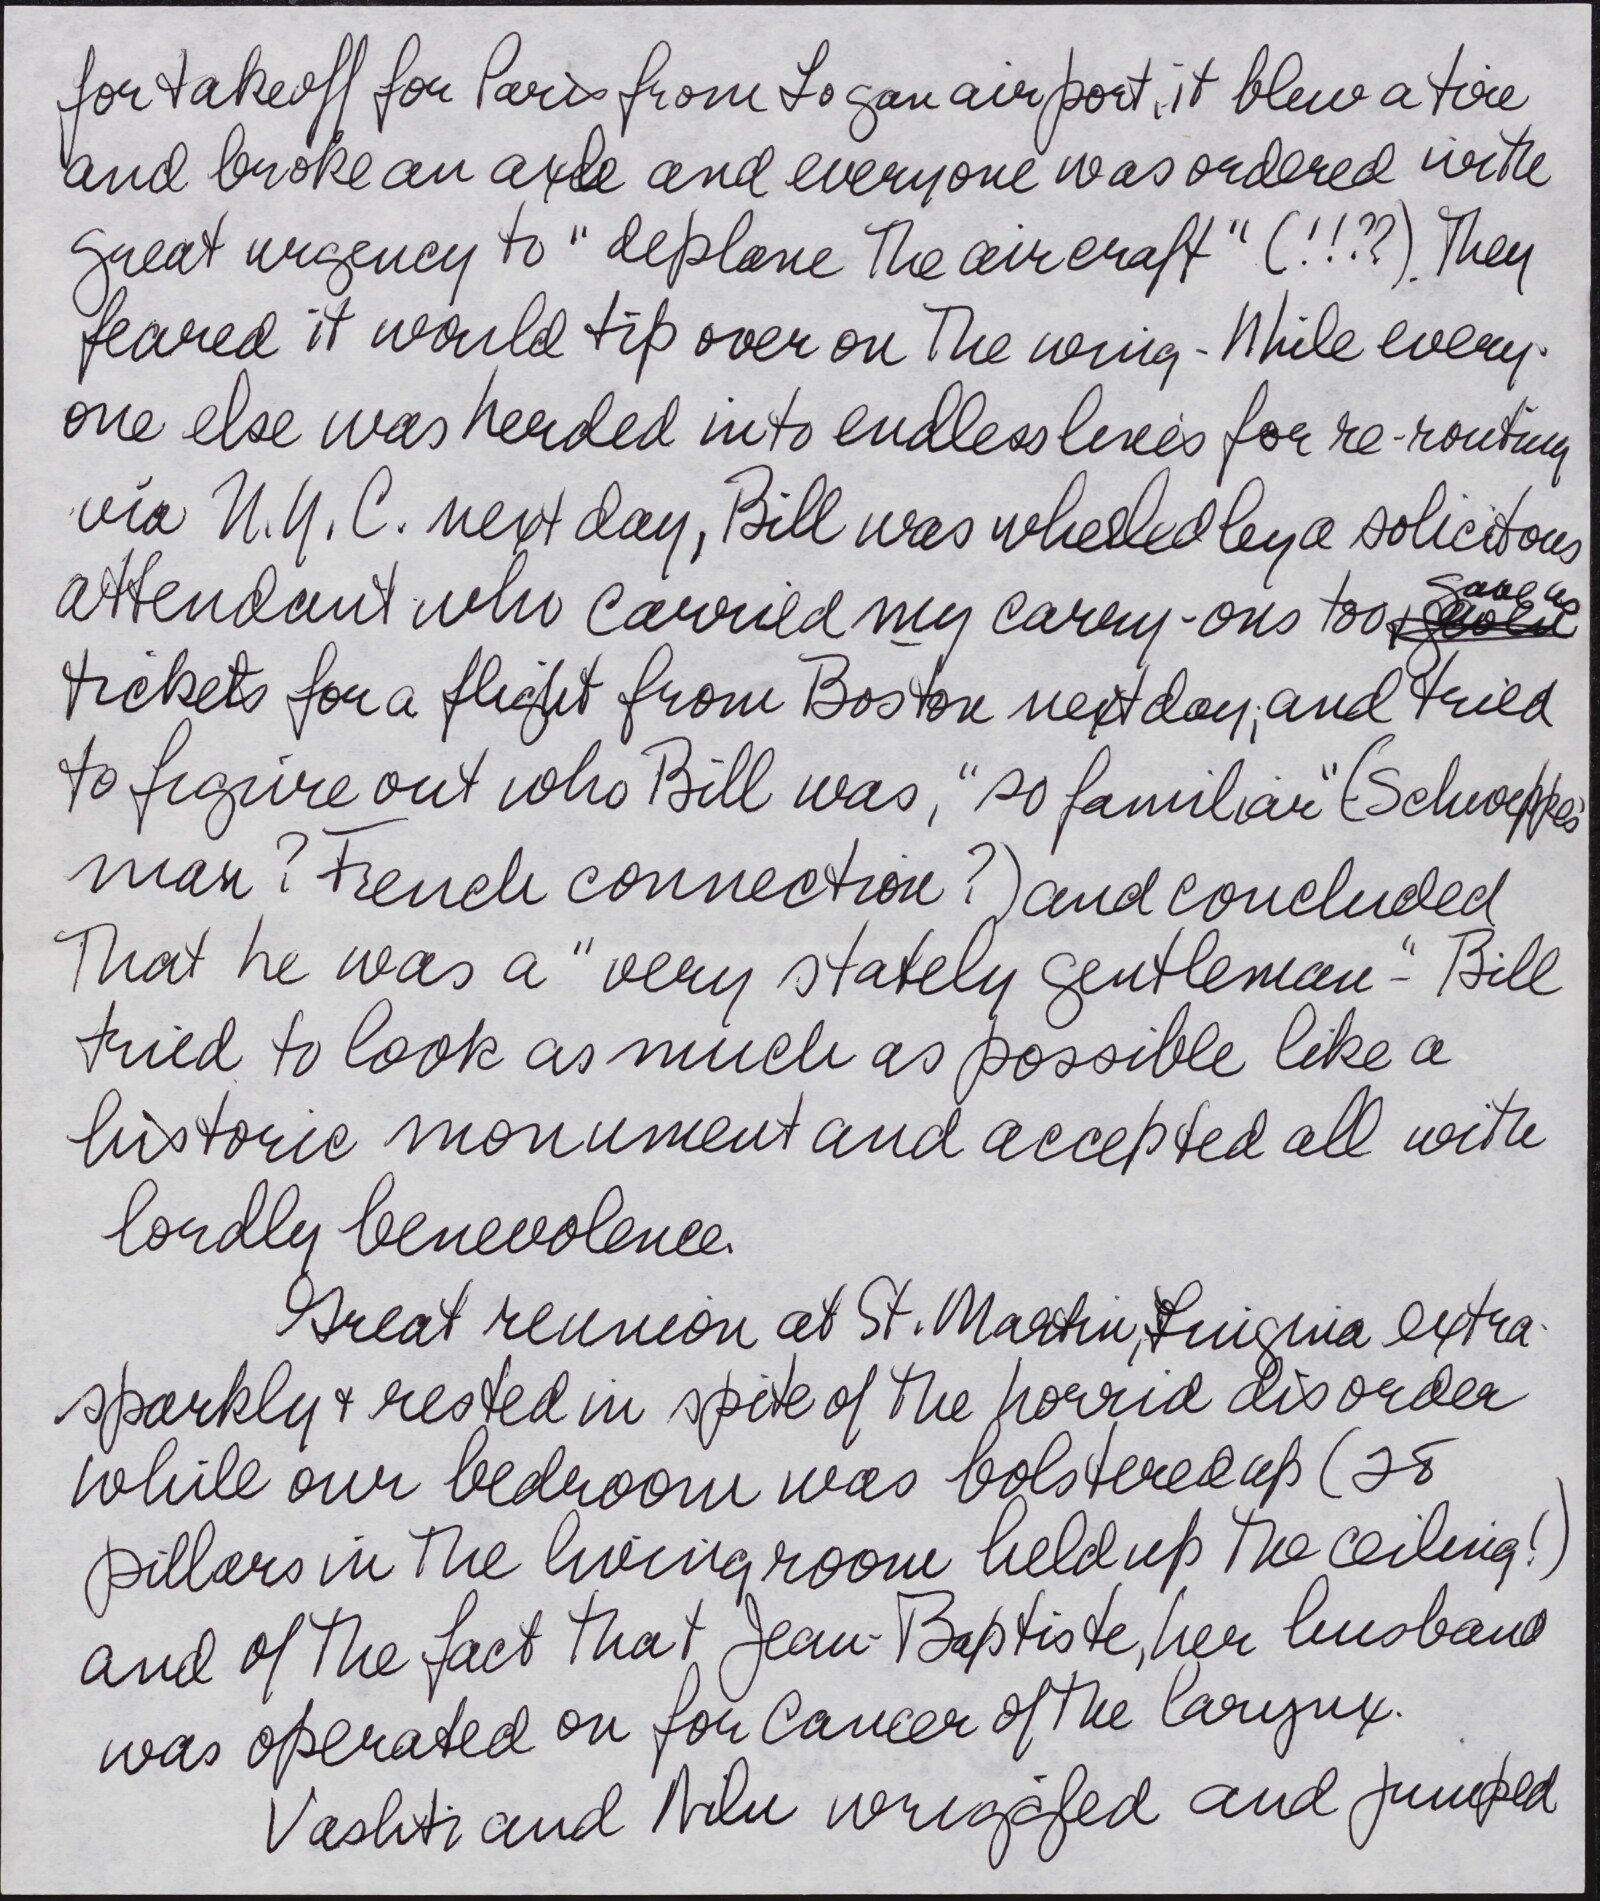 for takeoff for Paris from Logan airport, it blew a tire
and broke an axle and everyone was ordered with
great urgency to "deplane the aircraft" (!!??). They
feared it would tip over on the wing - While every-
one else was herded into endless lines for re-routing
via N.Y.C. next day, Bill was wheeled by a solicitous
attendant who carried my carry-ons too, gave us
tickets for a flight from Boston next day, and tried
to figure out who Bill was, "so familiar" (Schweppes
man? French connection?) and concluded
that he was a "very stately gentleman-" Bill
tried to look as much as possible like a
historic monument and accepted all with
lordly benevolence.
Great reunion at St. Martin, extra-
sparkly + rested in spite of the horrid disorder
while our bedroom was bolstered up (28
pillars in the living room held up the ceiling!)
and of the fact that Jean-Baptiste, her husband
was operated on for cancer of the larynx.
Vashti and Nilu wriggled and jumped